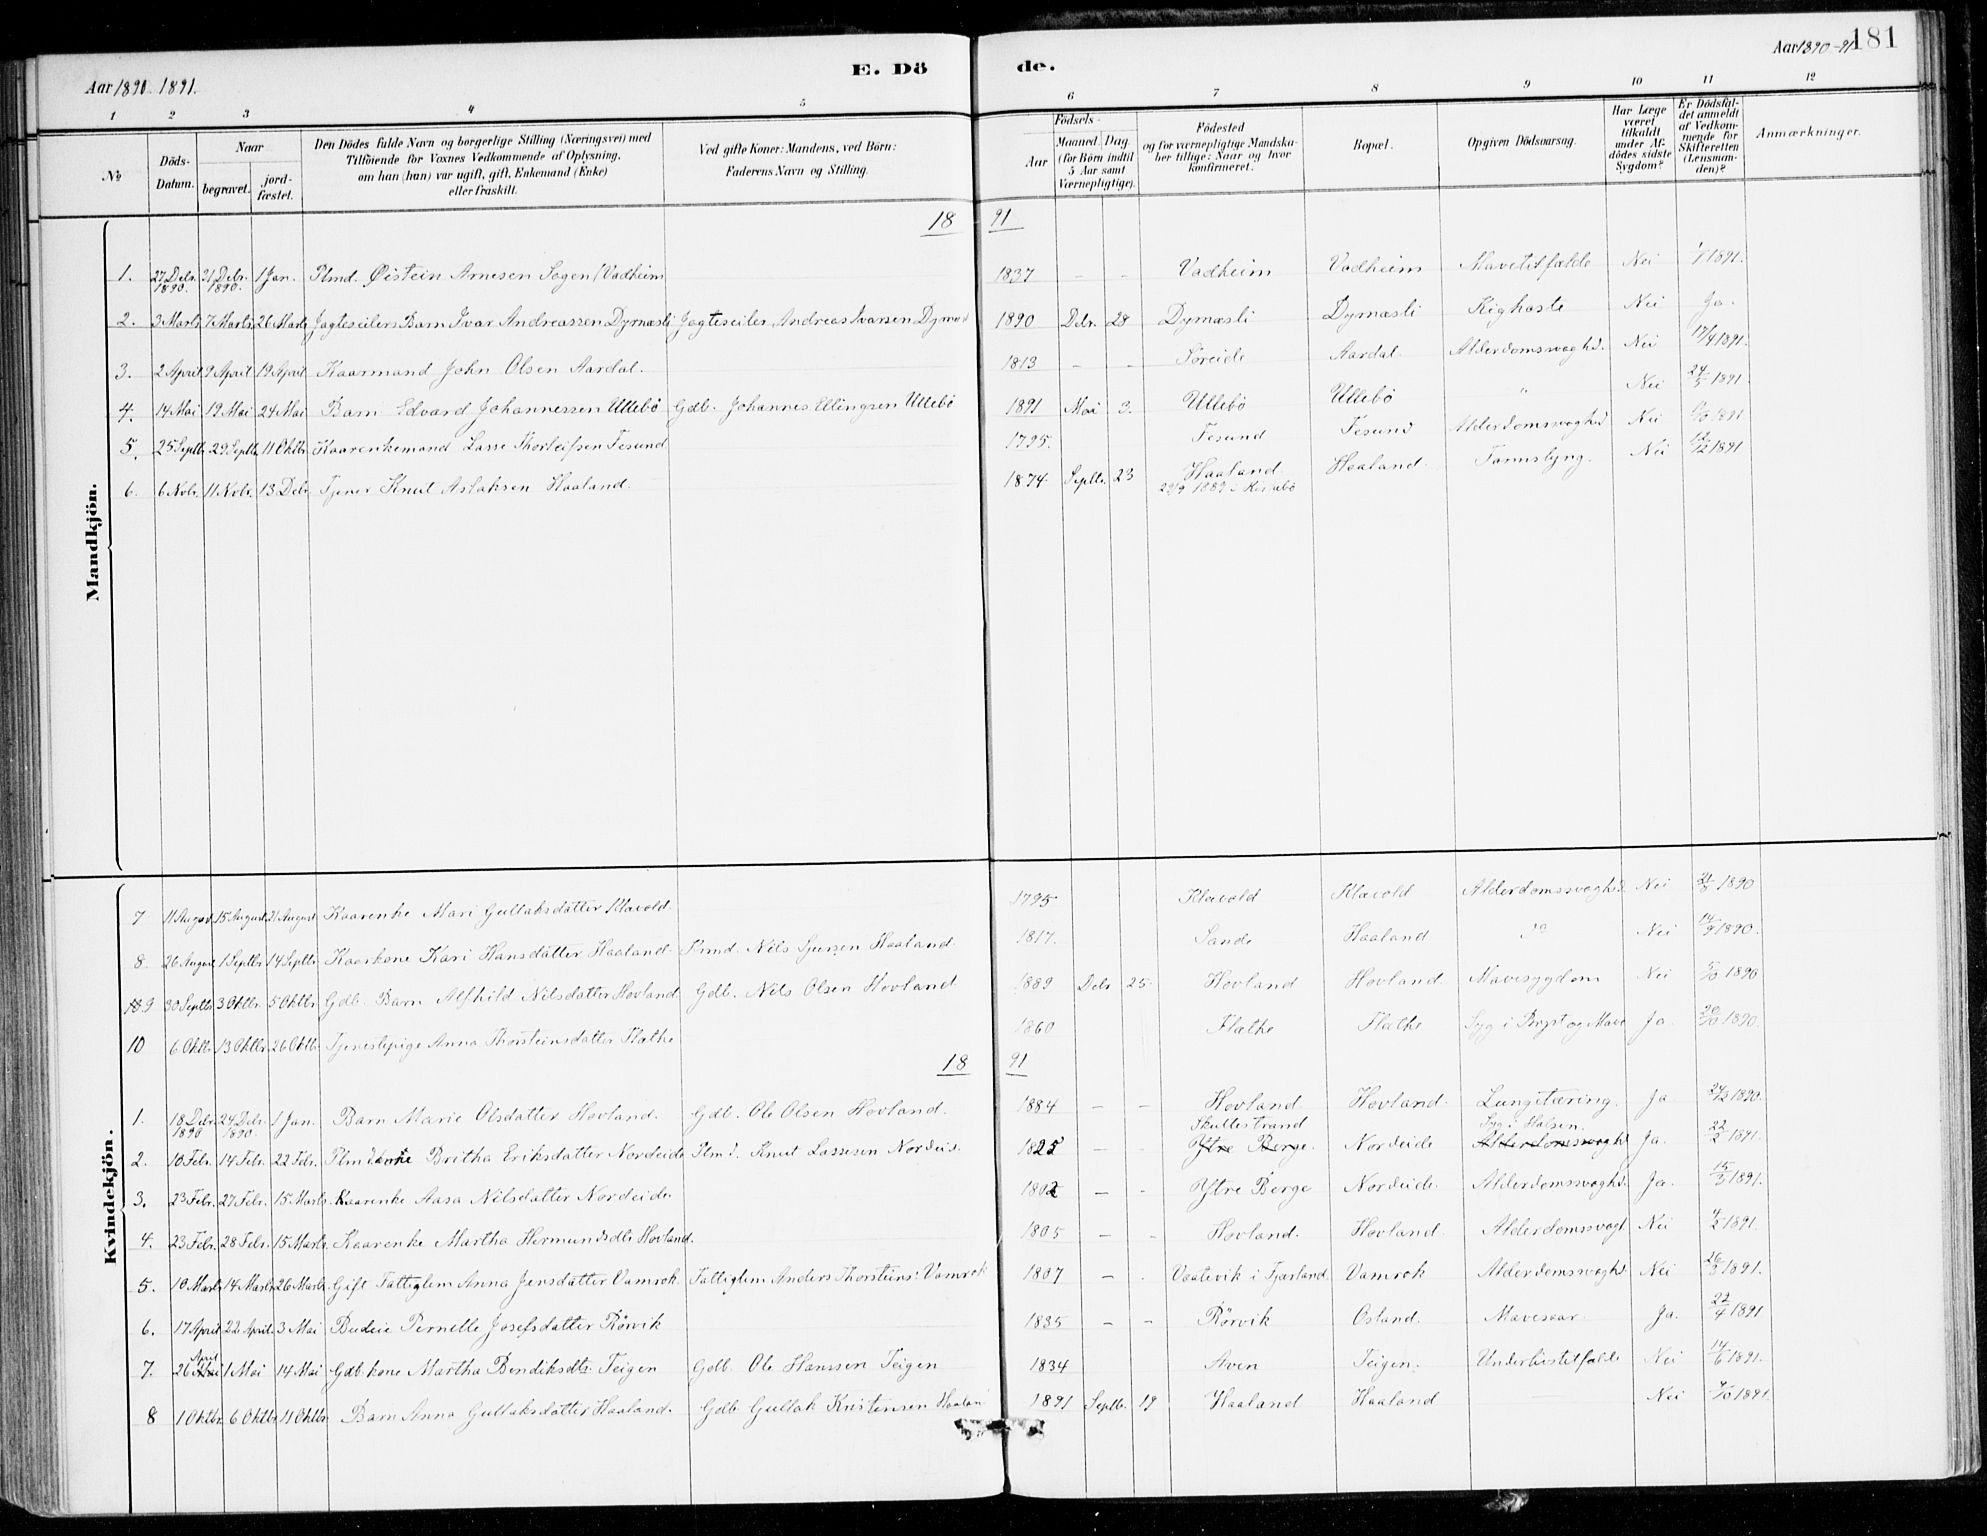 Aar 1890. 1891.
E. Dö
de.
Aar 1890-91
181
1 2 3 4 5 6 7 8 9 10 11 12
No
Döds-Datum.
Naar
begravet.
jord-fæstet.
Den Dödes fulde Navn og borgerlige Stilling (Næringsvei) med
Tilföiende for Voxnes Vedkommende af Oplysning,
om han (hun) var ugift, gift, Enkemand (Enke)
eller fraskilt.
Ved gifte Koner: Mandens, ved Börn:
Faderens Navn og Stilling.
Födsels-
Aar
Maaned. Dag.
(for Börn indtil
5 Aar samt
Værnepligtige).
Födested
og for værnepligtige Mandska-
ber tillige: Naar og hvor
konfirmeret.
Bopæl.
Opgiven Dödsaarsag.
Har Læge
været
tilkaldt
under Af-
dödes sidste
Sygdom?
Er Dödsfal-
det anmeldt
af Vedkom-
mende for
Skifteretten
(Lensman-
den)?
Anmærkninger.
Mandkjön.
18 91
1. 27 Debr. 1890. 31 Debr. 1890. 1 Jan. Plmd. Øistein Arnesen Sogen (Vadheim 1837 - - Vadheim Vadheim Mavetilfælde Nei 1/1 1891.
2. 3 Marts 7 Marts 26 Marts Jagteseilers Barn Ivar Andreassen Dyrnæsli Jagteseiler Andreas Ivarsen 1890 Debr. 28 Dyrnæsli Dyrnæsli Kighoste Nei Ja.
3. 2 April 9 April 19 April Kaarmand John Olsen Aardal. 1813 - - Søreide Aardal. Alderdomssvaghd. Nei 17/4 1891.
4. 14 Mai 19 Mai 24 Mai Barn Edvard Johannessen Ullebø Gdb. Johannes Ellingsen Ullebö 1891 Mai 3. Ullebö Ullebö " Nei 24/5 1891
5. 25 Septb. 29 Septb. 11 Oktbr. Kaarenkemand Lasse Thorleifsen Tesund 1795. Tesund Tesund Alderdomssvaghd Nei 1891
6. 6 Novbr. 11 Novbr. 13 Debr. Tjener Knut Aslaksen Haaland. 1874 Septbr. 23 Haaland Haaland. Nei 13/12 1891
1889 i
Kvindekjön.
7 11 August 15 August 31 August Kaarenke Mari Gullaksdatter Klævold. 1795 Klævold Klævold Alderdomssvaghd. Nei 1890
8. 26 August 1 Septbr. 14 Septbr. Kaarkone Kari Hansdatter Haaland Plmd. Nils Sjursen Haaland. 1817. Sande Haaland do Nei 14/9 1890.
9 30 Septbr. 3 Oktbr. 5 Oktbr. Gdb. Barn Alfhild Nilsdatter Hovland. Gdb. Nils Olsen Hovland 1889 Debr 25 Hovland Hovland. Mavesygdom Nei 5/10 1890
10 6 Oktbr. 13 Oktbr. 26 Oktbr. Tjenestepige Anna Thorsteinsdatter Flathe 1860 Flathe Flathe Syg i Bryst og Mave Ja. 26/10 1890.
18 91
1. 18 Debr. 1890 24 Debr. 1890. 1 Jan. Barn Marie Olsdatter Hovland. Gdb. Ole Olsen Hovland. 1884 - - Hovland. Hovland. Lungetæring. Ja 24/12 1890.
Skultestrand Syg i Halsen.
2. 10 Febr. 14 Febr. 22 Febr. Plmdkone Britha Eriksdatter Nordeide Plmd. Knut Lassesen Nordeid. 1825 Ytre Berge. Nordeide Alderdomssvaghd Ja. 22/2 1891.
3. 23 Febr. 27 Febr. 15 Marts. Kaarenke Aasa Nilsdatter Nordeide. 1802 - - Ytre Berge Nordeide. Alderdomssvaghd. Ja. 15/3 1891.
4. 23 Febr. 28 Febr. 15 Marts Kaarenke Martha Hermundsdtr Hovland. 1805 - - Hovland. Hovland. Alderdomssvagh Nei 1891.
5. 10 Marts 14 Marts 26 Marts. Gift Fattiglem Anna Jensdatter Vamrok. Fattiglem Anders Thorsteins. Vamrok 1807 - . Vaatevik i Fjærland. Vamrok Alderdomssvaghd Nei 26/3 1891.
6. 17 April 22 April. 3 Mai Budeie Pernelle Josefsdatter Rörvik 1835 - - Rörvik Osland. Mavesaar. Ja. 22/4 1891
7. 26 April 1 Mai 14 Mai Gdb.kone Martha Bendiksdtr Teigen Gdb. Ole Hanssen Teigen 1834 Aven Teigen. Underlivstilfælde Nei 14/6 1891.
8 1 Oktbr. 6 Oktbr 11 Oktbr. Barn Anna Gullaksdatter Haaland. Gdb Gullak Kristensen Haalan 1891 Septbr. 19 Haaland Haaland — Nei 1891.